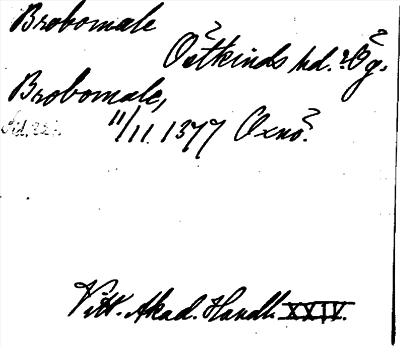 Brobomale
Östkinds hd. Ög.
Brobomale,
Sid. 22.
11/11 1377 Oxnö?
Vitt. Akad. Handl. XXIV.